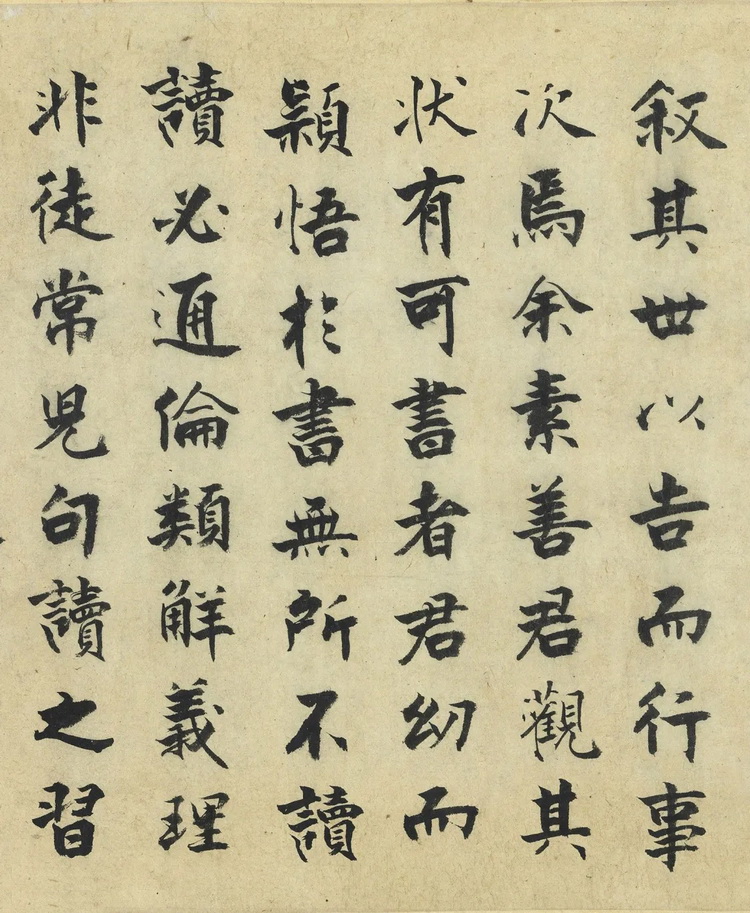 叙其世以告而行事
次焉余素善君觀其
狀有可書者君幼而
穎悟於書無所不讀
讀必通倫類解義理
非徒常兒句讀之習